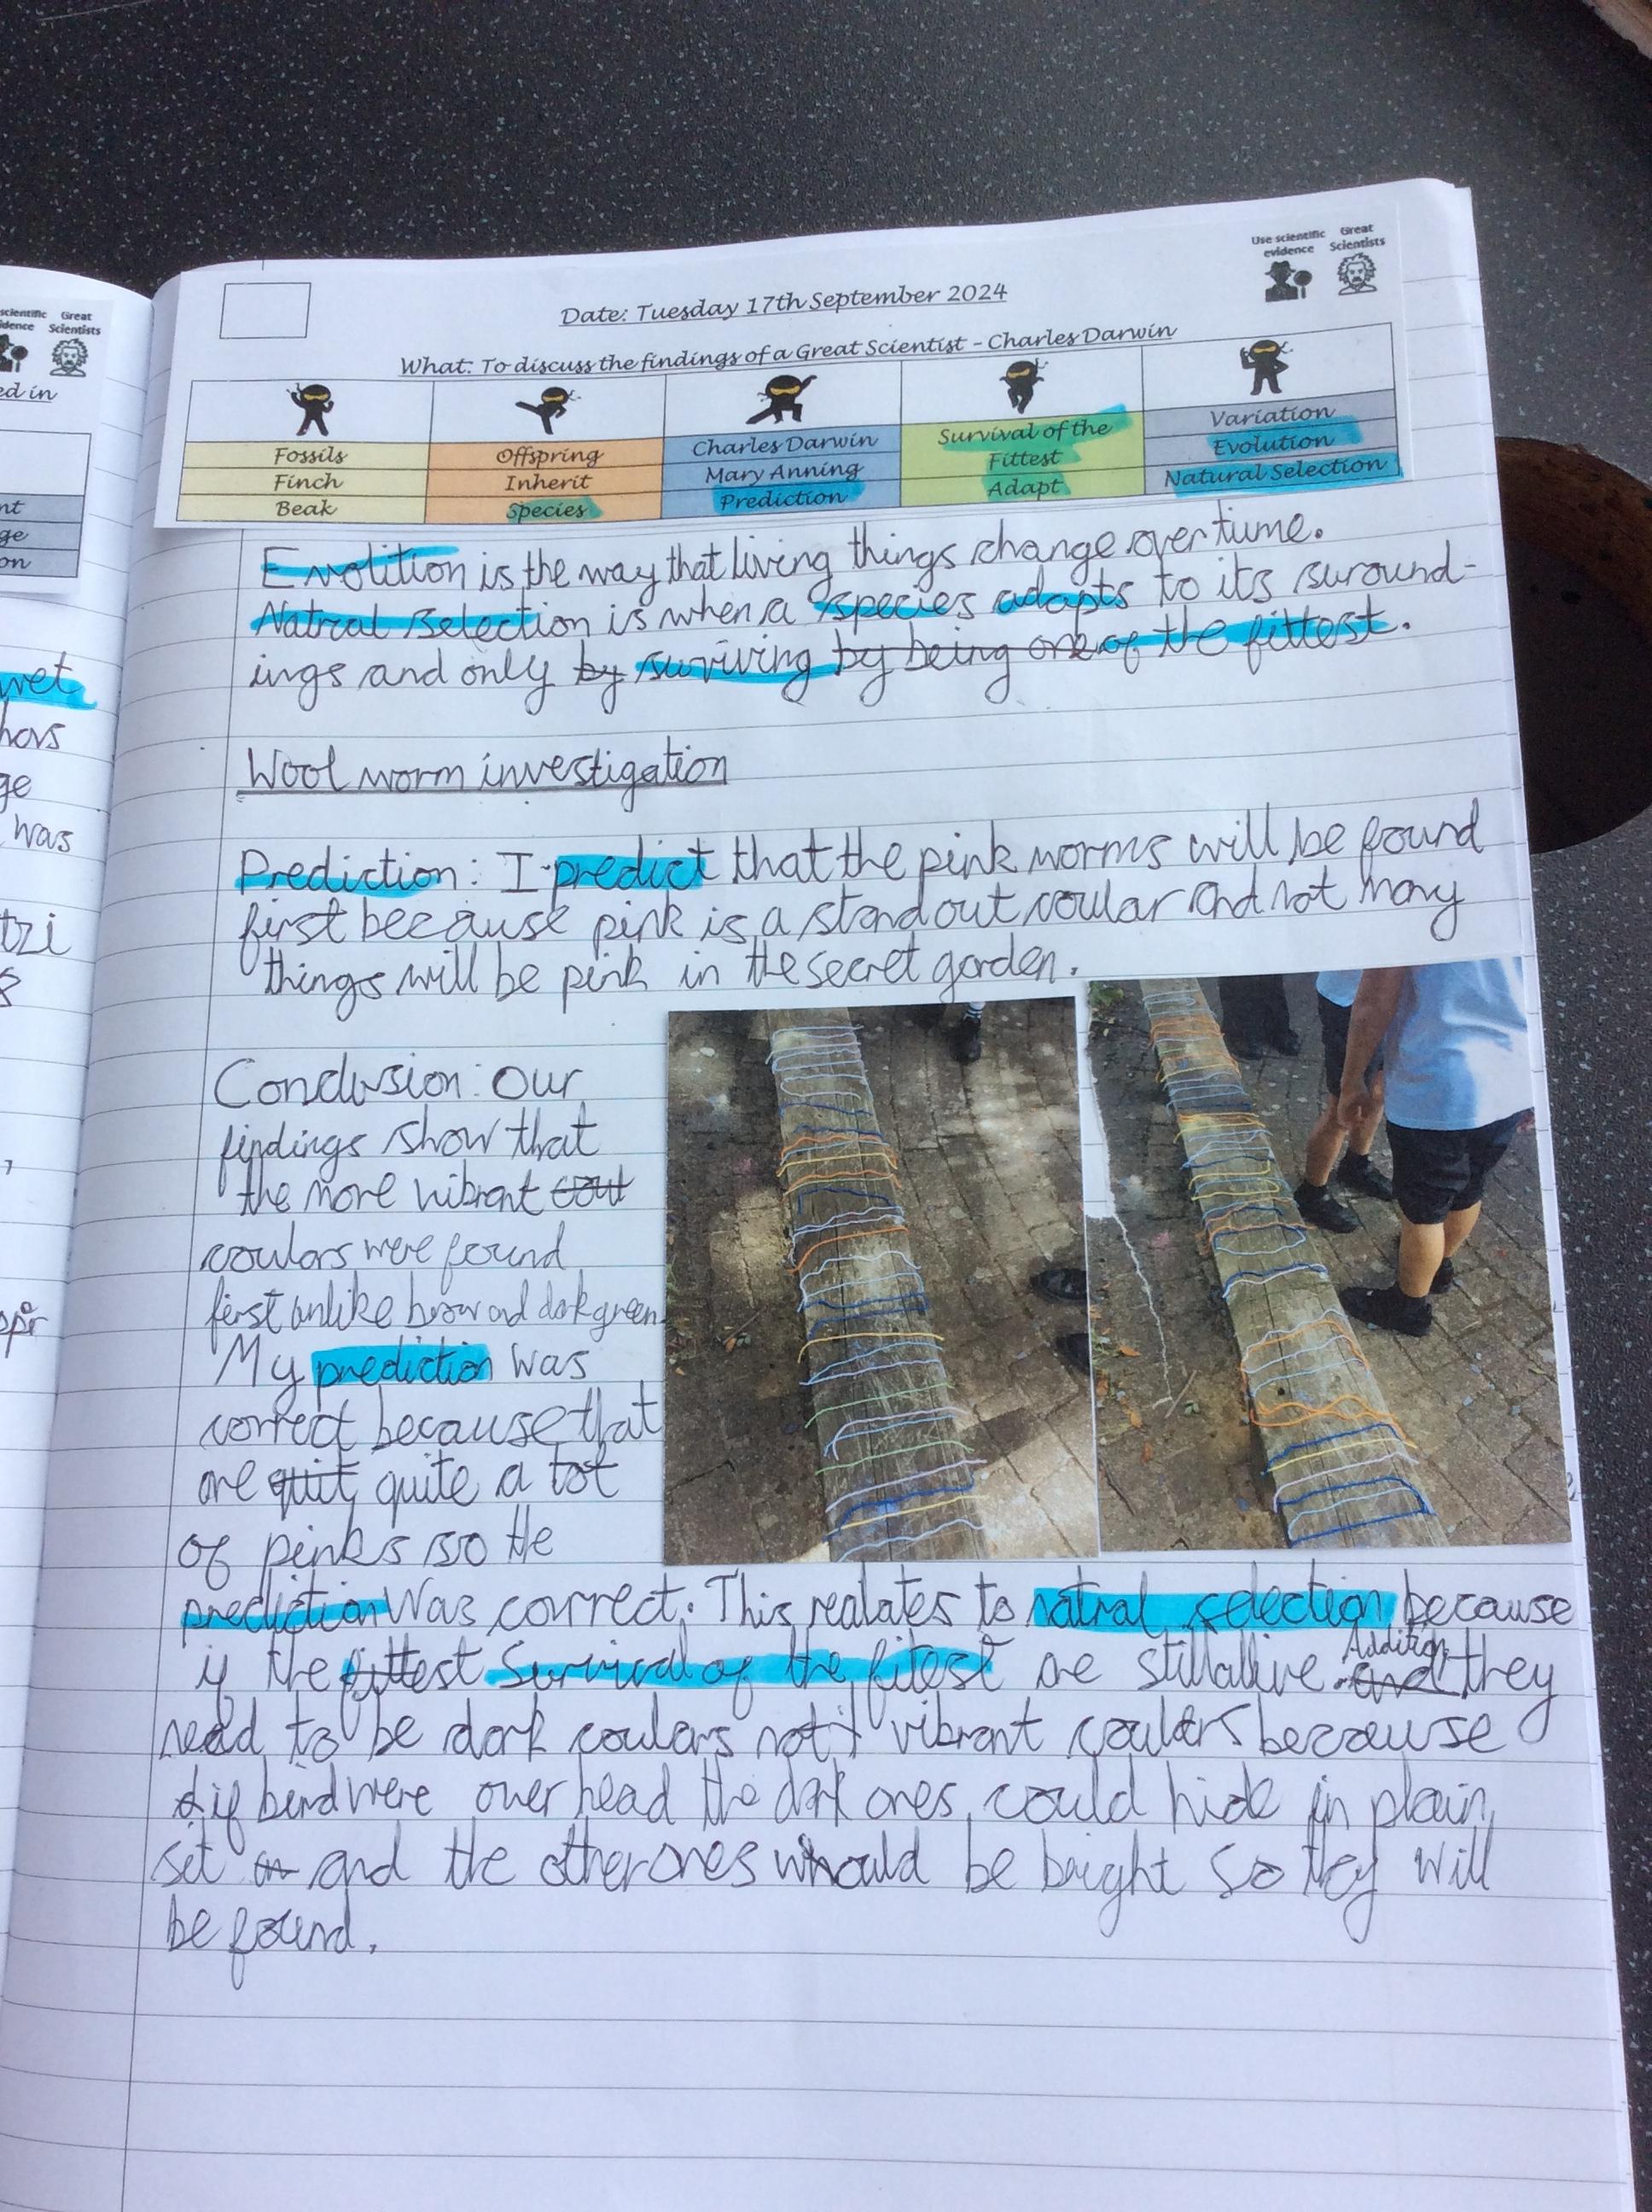 Use scientific evidence
Great Scientists
Date: Tuesday 17th September 2024
What: To discuss the findings of a Great Scientist - Charles Darwin
Fossils
Finch
Beak
Offspring
Inherit
Species
Charles Darwin
Mary Anning
Prediction
Survival of the
Fittest
Adapt
Variation
Evolution
Natural Selection
Evolition is the way that living things change over time.
Natral selection is when a species adapts to its suround-
ings and only by surviving by being one of the fittest.
Wool worm investigation
Prediction: I predict that the pink worms will be found
first because pink is a stand out coular and not many
things will be pink in the secret garden.
Conclusion: Our
findings show that
the more vibrant
coulars were found
first unlike brow and dark green
My prediction was
correct because that
are quit quite a lot
of pinks so the
prediction was correct. This realates to natral selection because
if the fittest Survival of the fitest are still alive. Addition and they
need to be dark coulars not vibrant coulars because
if bird were over head the dark ones could hide in plain
set and the other ones whould be bright so they will
be found.
scientific
idence
Great
Scientists
ed in
nt
ge
on
wet
ge
was
tzi